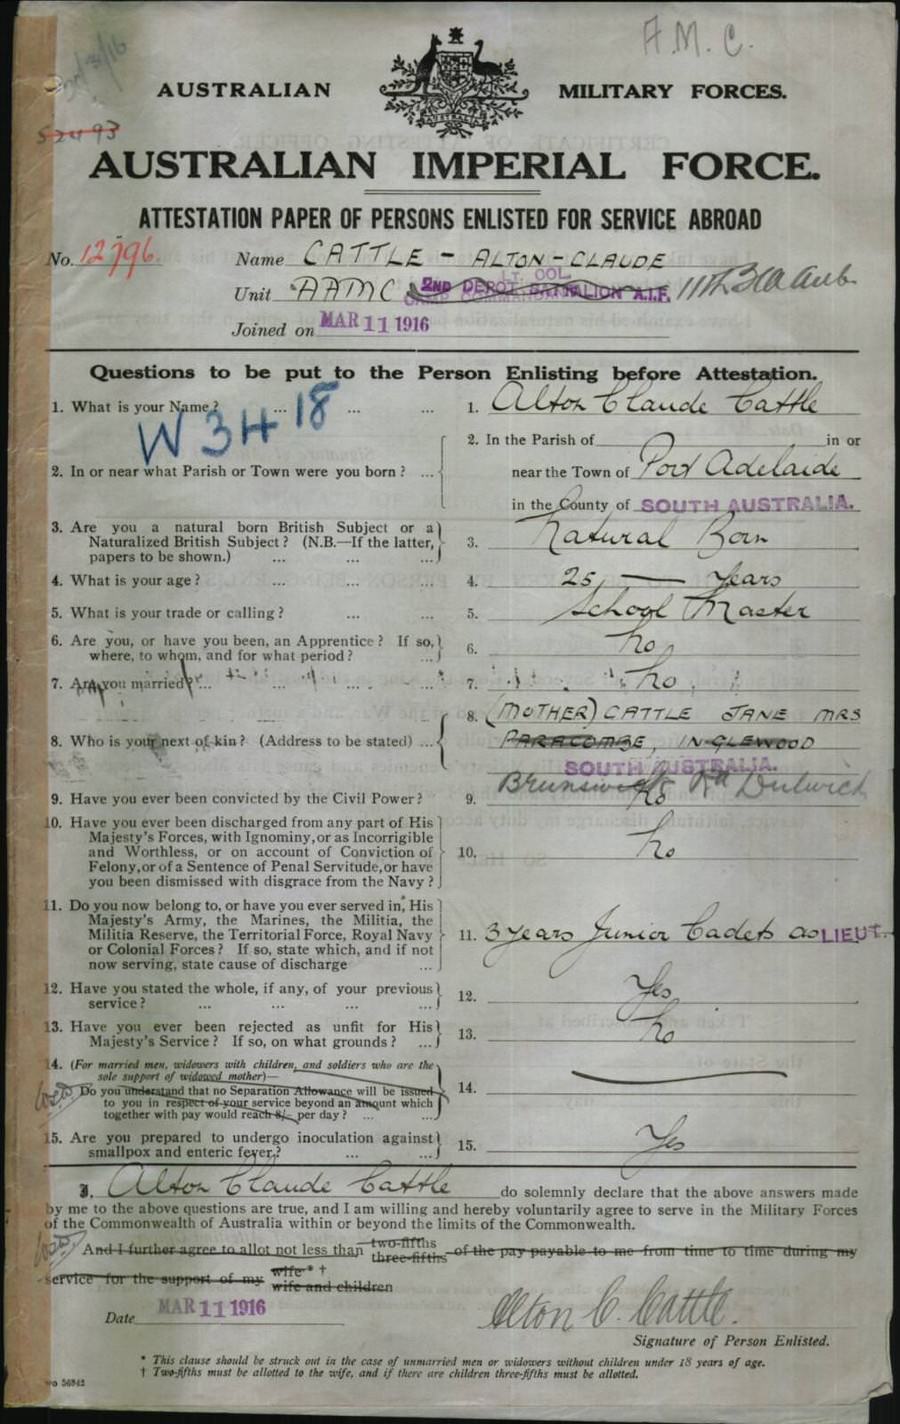 A.M.C.
AUSTRALIAN MILITARY FORCES.
AUSTRALIA
52493
AUSTRALIAN IMPERIAL FORCE.
ATTESTATION PAPER OF PERSONS ENLISTED FOR SERVICE ABROAD
No. 12796. Name CATTLE - ALTON-CLAUDE
LT. COL.
Unit AAMC 2ND DEPOT BATTALION A.I.F. 11th
Joined on MAR 11 1916
Questions to be put to the Person Enlisting before Attestation.
1. What is your Name? ... ... ... 1. Alton Claude Cattle
W3H18
2. In the Parish of in or
2. In or near what Parish or Town were you born? ... near the Town of Port Adelaide
in the County of SOUTH AUSTRALIA.
3. Are you a natural born British Subject or a
Naturalized British Subject? (N.B.—If the latter, 3. Natural Born
papers to be shown.) ... ... ...
4. What is your age? ... ... ... 4. 25 — Years
5. What is your trade or calling? ... ... 5. School Master
6. Are you, or have you been, an Apprentice? If so,
where, to whom, and for what period? ... 6. No
7. Are you married? ... ... ... ... 7. No
8. (MOTHER) CATTLE JANE MRS
8. Who is your next of kin? (Address to be stated) ... PARACOMBE, INGLEWOOD
SOUTH AUSTRALIA.
Brunswick Rd Dulwich
9. Have you ever been convicted by the Civil Power? 9. No
10. Have you ever been discharged from any part of His
Majesty's Forces, with Ignominy, or as Incorrigible
and Worthless, or on account of Conviction of 10. No
Felony, or of a Sentence of Penal Servitude, or have
you been dismissed with disgrace from the Navy?
11. Do you now belong to, or have you ever served in, His
Majesty's Army, the Marines, the Militia, the
Militia Reserve, the Territorial Force, Royal Navy 11. 3 years Junior Cadets as LIEUT.
or Colonial Forces? If so, state which, and if not
now serving, state cause of discharge ...
12. Have you stated the whole, if any, of your previous
service? ... ... ... ... 12. Yes
13. Have you ever been rejected as unfit for His
Majesty's Service? If so, on what grounds? ... 13. No
14. (For married men, widowers with children, and soldiers who are the
sole support of widowed mother)—
Do you understand that no Separation Allowance will be issued 14.
to you in respect of your service beyond an amount which
together with pay would reach 8/- per day? ... ...
15. Are you prepared to undergo inoculation against
smallpox and enteric fever? ... ... 15. Yes
I, Alton Claude Cattle do solemnly declare that the above answers made
by me to the above questions are true, and I am willing and hereby voluntarily agree to serve in the Military Forces
of the Commonwealth of Australia within or beyond the limits of the Commonwealth.
And I further agree to allot not less than two-fifths three-fifths of the pay payable to me from time to time during my
service for the support of my wife* † wife and children
Date MAR 11 1916 Alton C. Cattle.
Signature of Person Enlisted.
* This clause should be struck out in the case of unmarried men or widowers without children under 18 years of age.
† Two-fifths must be allotted to the wife, and if there are children three-fifths must be allotted.